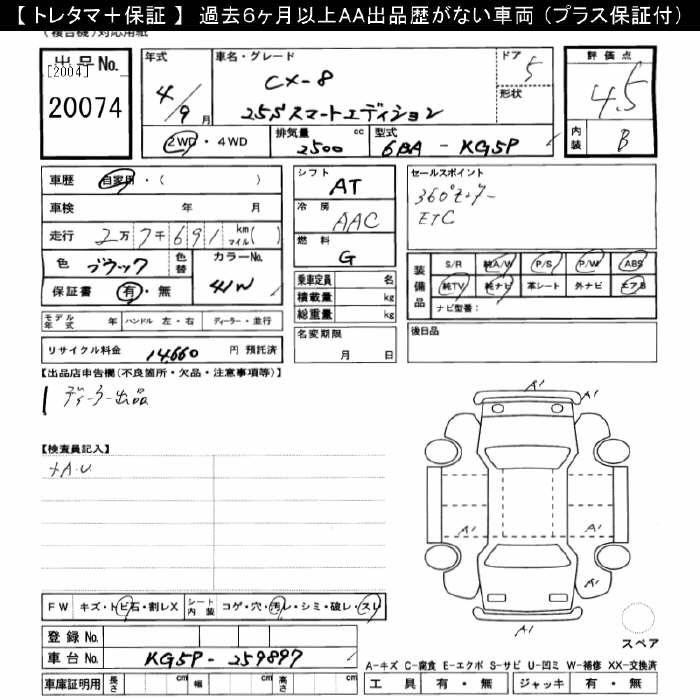 【 トレタマ＋保証 】 過去6ヶ月以上AA出品歴がない車両（プラス保証付）
（複合機）対応用紙
出品No.
[2004]
20074
年式
4/9月
車名・グレード
CX-8
25Sスマートエディション
ドア
5
形状
2WD・4WD
排気量 cc
2500
型式
6BA - KG5P
評価点
4.5
内装
B
車歴 自家用・( )
車検 年 月
走行 2万7千691 km マイル( )
色 ブラック 色替 カラーNo. 41W
保証書 有・無
モデル年式 年 ハンドル 左・右 ディーラー・並行
リサイクル料金 14,660 円 預託済
シフト
AT
冷房
AAC
燃料
G
乗車定員 名
積載量 kg
総重量 kg
名変期限
月 日
セールスポイント
ETC
装備品
S/R 純A/W P/S P/W ABS
純TV 純ナビ 革シート 外ナビ エアB
ナビ型番：
後日品
【出品店申告欄(不良箇所・欠品・注意事項等)】
ディーラー出品
【検査員記入】
A1
A1
A1
A1
A1
A1
FW キズ・トビ石・割レX シート内装 コゲ・穴・汚レ・シミ・破レ・スレ
登録 No.
車台 No. KG5P-259897
車庫証明用 長さ cm 幅 cm 高さ cm
スペア
A-キズ C-腐食 E-エクボ S-サビ U-凹ミ W-補修 XX-交換済
工具 有・無 ジャッキ 有・無